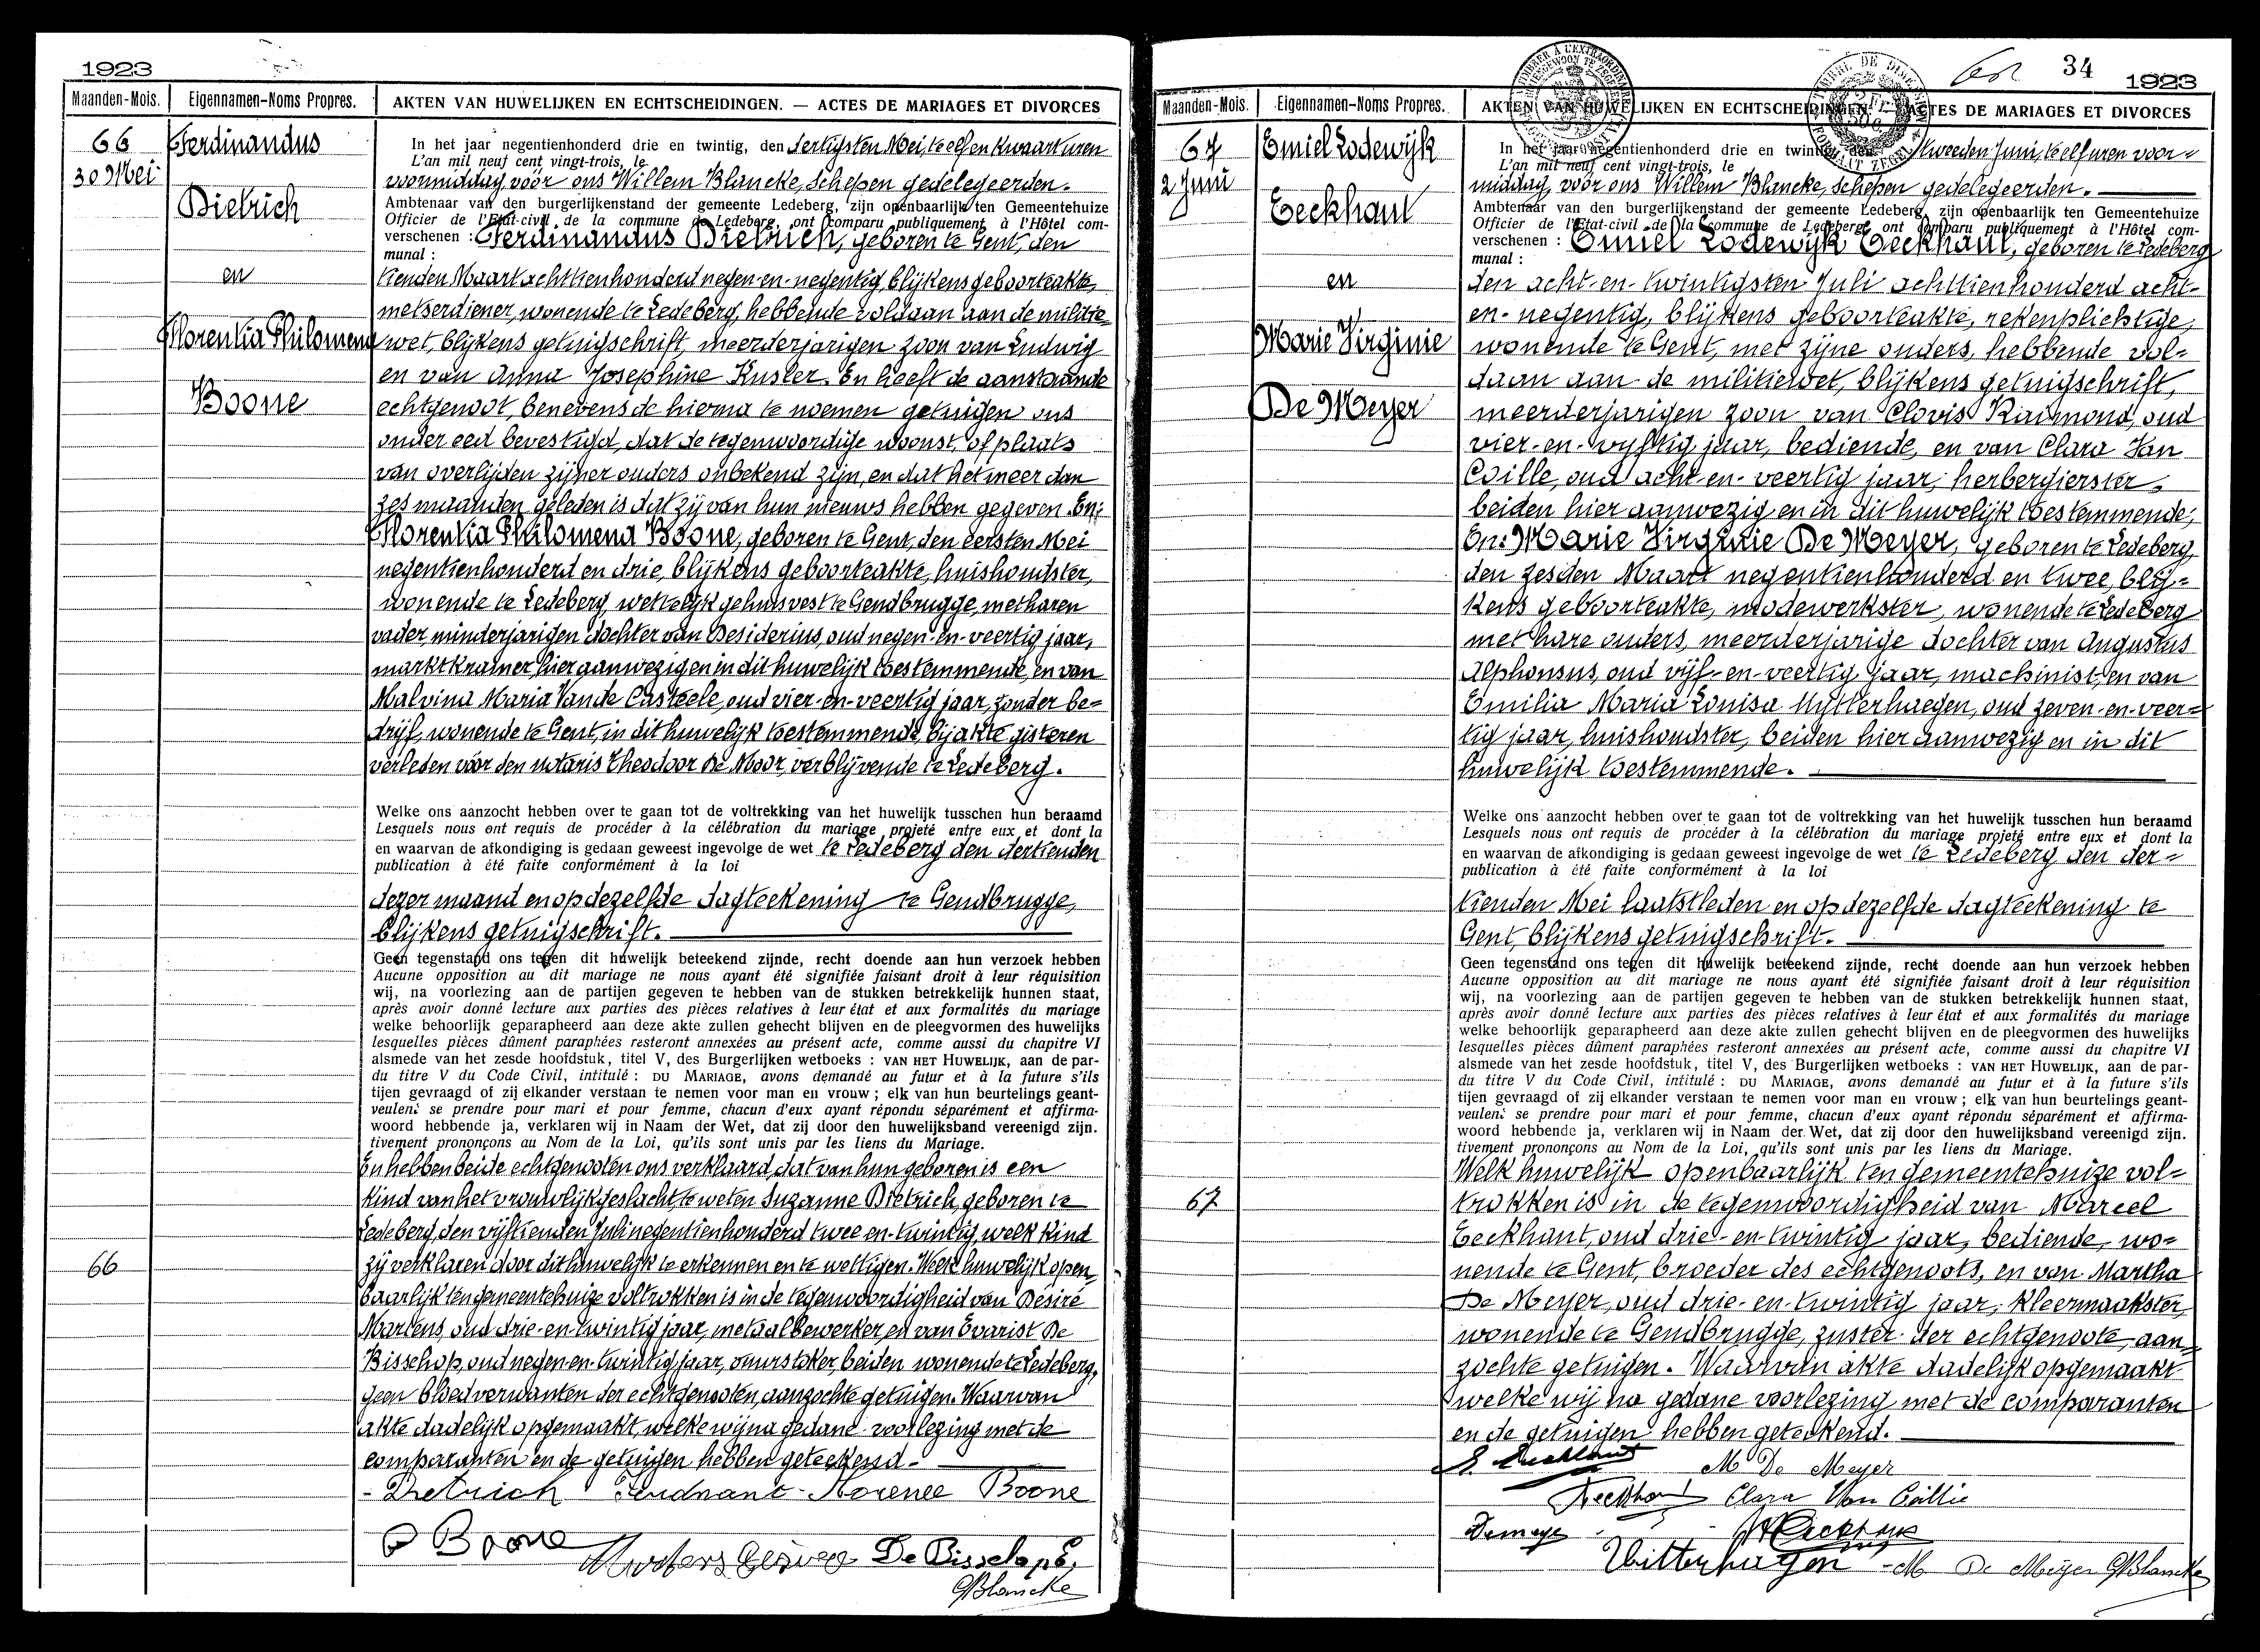 1923
Maanden-Mois. Eigennamen-Noms Propres. AKTEN VAN HUWELIJKEN EN ECHTSCHEIDINGEN. — ACTES DE MARIAGES ET DIVORCES
66
30 Mei
Ferdinandus
Dietrich
en
Florentia Philomena
Boone
66
In het jaar negentienhonderd drie en twintig, den dertigsten Mei, te elf en kwaart uren
L'an mil neuf cent vingt-trois, le
voormiddag vóór ons Willem Blancke, schepen gedelegeerden.
Ambtenaar van den burgerlijkenstand der gemeente Ledeberg, zijn openbaarlijk ten Gemeentehuize
Officier de l'Etat-civil de la commune de Ledeberg, ont comparu publiquement à l'Hôtel com-
verschenen : Ferdinandus Dietrich, geboren te Gent, den
munal :
tienden Maart achttienhonderd negen-en-negentig, blijkens geboorteakte,
metserdiener, wonende te Ledeberg, hebbende voldaan aan de militie-
wet, blijkens getuigschrift, meerderjarigen zoon van Ludwig
en van Anna Josephine Kusler. En heeft de aanstaande
echtgenoot, benevens de hierna te noemen getuigen ons
onder eed bevestigd, dat de tegenwoordige woonst, of plaats
van overlijden zijner ouders onbekend zijn, en dat het meer dan
zes maanden geleden is dat zij van hun nieuws hebben gegeven. En:
Florentia Philomena Boone, geboren te Gent, den eersten Mei
negentienhonderd en drie, blijkens geboorteakte, huishoudster,
wonende te Ledeberg, wettelijk gehuisvest te Gendbrugge, met haren
vader, minderjarigen dochter van Desiderius, oud negen-en-veertig jaar,
marktkramer, hier aanwezig en in dit huwelijk toestemmende, en van
Malvina Maria Van de Casteele, oud vier-en-veertig jaar, zonder be-
drijf, wonende te Gent, in dit huwelijk toestemmende, bij akte gisteren
verleden vóór den notaris Theodoor De Moor, verblijvende te Ledeberg.
Welke ons aanzocht hebben over te gaan tot de voltrekking van het huwelijk tusschen hun beraamd
Lesquels nous ont requis de procéder à la célébration du mariage projeté entre eux et dont la
en waarvan de afkondiging is gedaan geweest ingevolge de wet te Ledeberg den dertienden
publication à été faite conformément à la loi
dezer maand en op dezelfde dagteekening te Gendbrugge,
blijkens getuigschrift.
Geen tegenstand ons tegen dit huwelijk beteekend zijnde, recht doende aan hun verzoek hebben
Aucune opposition au dit mariage ne nous ayant été signifiée faisant droit à leur réquisition
wij, na voorlezing aan de partijen gegeven te hebben van de stukken betrekkelijk hunnen staat,
après avoir donné lecture aux parties des pièces relatives à leur état et aux formalités du mariage
welke behoorlijk geparapheerd aan deze akte zullen gehecht blijven en de pleegvormen des huwelijks
lesquelles pièces dûment paraphées resteront annexées au présent acte, comme aussi du chapitre VI
alsmede van het zesde hoofdstuk, titel V, des Burgerlijken wetboeks : VAN HET HUWELIJK, aan de par-
du titre V du Code Civil, intitulé : DU MARIAGE, avons demandé au futur et à la future s'ils
tijen gevraagd of zij elkander verstaan te nemen voor man en vrouw ; elk van hun beurtelings geant-
veulent se prendre pour mari et pour femme, chacun d'eux ayant répondu séparément et affirma-
woord hebbende ja, verklaren wij in Naam der Wet, dat zij door den huwelijksband vereenigd zijn.
tivement prononçons au Nom de la Loi, qu'ils sont unis par les liens du Mariage.
En hebben beide echtgenooten ons verklaard, dat van hun geboren is een
kind van het vrouwlijk geslacht, te weten Suzanne Dietrich, geboren te
Ledeberg, den vijftienden Juli negentienhonderd twee-en-twintig, welk kind
zij verklaren door dit huwelijk te erkennen en te wettigen. Welk huwelijk open-
baarlijk ten gemeentehuize voltrokken is in de tegenwoordigheid van Désiré
Martens, oud drie-en-twintig jaar, metaalbewerker, en van Evarist De
Bisschop, oud negen-en-twintig jaar, vuurstoker, beiden wonende te Ledeberg,
geen bloedverwanten der echtgenooten, aanzochte getuigen. Waarvan
akte dadelijk opgemaakt, welke wij na gedane voorlezing met de
comparanten en de getuigen hebben geteekend.
Dietrich Ferdnant Florence Boone
D Boone
De Bisschop E.
WBlancke
34
1923
Maanden-Mois. Eigennamen-Noms Propres. AKTEN VAN HUWELIJKEN EN ECHTSCHEIDINGEN. — ACTES DE MARIAGES ET DIVORCES
67
2 Juni
Emiel Lodewijk
Eeckhaut
en
Marie Virginie
De Meyer
67
In het jaar negentienhonderd drie en twintig, den tweeden Juni, te elf uren voor-
L'an mil neuf cent vingt-trois, le
middag, vóór ons Willem Blancke, schepen gedelegeerden.
Ambtenaar van den burgerlijkenstand der gemeente Ledeberg, zijn openbaarlijk ten Gemeentehuize
Officier de l'Etat-civil de la commune de Ledeberg, ont comparu publiquement à l'Hôtel com-
verschenen : Emiel Lodewijk Eeckhaut, geboren te Ledeberg
munal :
den acht-en-twintigsten Juli achttienhonderd acht-
en-negentig, blijkens geboorteakte, rekenplichtige,
wonende te Gent, met zijne ouders, hebbende vol-
daan aan de militiewet, blijkens getuigschrift,
meerderjarigen zoon van Clovis Raimond, oud
vier-en-vyftig jaar, bediende, en van Clara Van
Coillie, oud acht-en-veertig jaar, herbergierster,
beiden hier aanwezig en in dit huwelijk toestemmende;
En: Marie Virginie De Meyer, geboren te Ledeberg,
den zesden Maart negentienhonderd en twee, blij-
kens geboorteakte, modewerkster, wonende te Ledeberg
met hare ouders, meerderjarige dochter van Augustus
Alphonsus, oud vijf-en-veertig jaar, machinist, en van
Emilia Maria Louisa Uytterhaegen, oud zeven-en-veer-
tig jaar, huishoudster, beiden hier aanwezig en in dit
huwelijk toestemmende.
Welke ons aanzocht hebben over te gaan tot de voltrekking van het huwelijk tusschen hun beraamd
Lesquels nous ont requis de procéder à la célébration du mariage projeté entre eux et dont la
en waarvan de afkondiging is gedaan geweest ingevolge de wet te Ledeberg den der-
publication à été faite conformément à la loi
tienden Mei laatstleden en op dezelfde dagteekening te
Gent, blijkens getuigschrift.
Geen tegenstand ons tegen dit huwelijk beteekend zijnde, recht doende aan hun verzoek hebben
Aucune opposition au dit mariage ne nous ayant été signifiée faisant droit à leur réquisition
wij, na voorlezing aan de partijen gegeven te hebben van de stukken betrekkelijk hunnen staat,
après avoir donné lecture aux parties des pièces relatives à leur état et aux formalités du mariage
welke behoorlijk geparapheerd aan deze akte zullen gehecht blijven en de pleegvormen des huwelijks
lesquelles pièces dûment paraphées resteront annexées au présent acte, comme aussi du chapitre VI
alsmede van het zesde hoofdstuk, titel V, des Burgerlijken wetboeks : VAN HET HUWELIJK, aan de par-
du titre V du Code Civil, intitulé : DU MARIAGE, avons demandé au futur et à la future s'ils
tijen gevraagd of zij elkander verstaan te nemen voor man en vrouw ; elk van hun beurtelings geant-
veulent se prendre pour mari et pour femme, chacun d'eux ayant répondu séparément et affirma-
woord hebbende ja, verklaren wij in Naam der Wet, dat zij door den huwelijksband vereenigd zijn.
tivement prononçons au Nom de la Loi, qu'ils sont unis par les liens du Mariage.
Welk huwelijk openbaarlijk ten gemeentehuize vol-
trokken is in de tegenwoordigheid van Marcel
Eeckhaut, oud drie-en-twintig jaar, bediende, wo-
nende te Gent, broeder des echtgenoots, en van Martha
De Meyer, oud drie-en-twintig jaar, kleermaakster,
wonende te Gendbrugge, zuster der echtgenoote, aan-
zochte getuigen. Waarvan akte dadelijk opgemaakt
welke wij na gedane voorlezing met de comparanten
en de getuigen hebben geteekend.
E. Eeckhaut M De Meyer
Eeckhaut Clara Van Coillie
Demeye
Uitterhaegen M De Meijer WBlancke